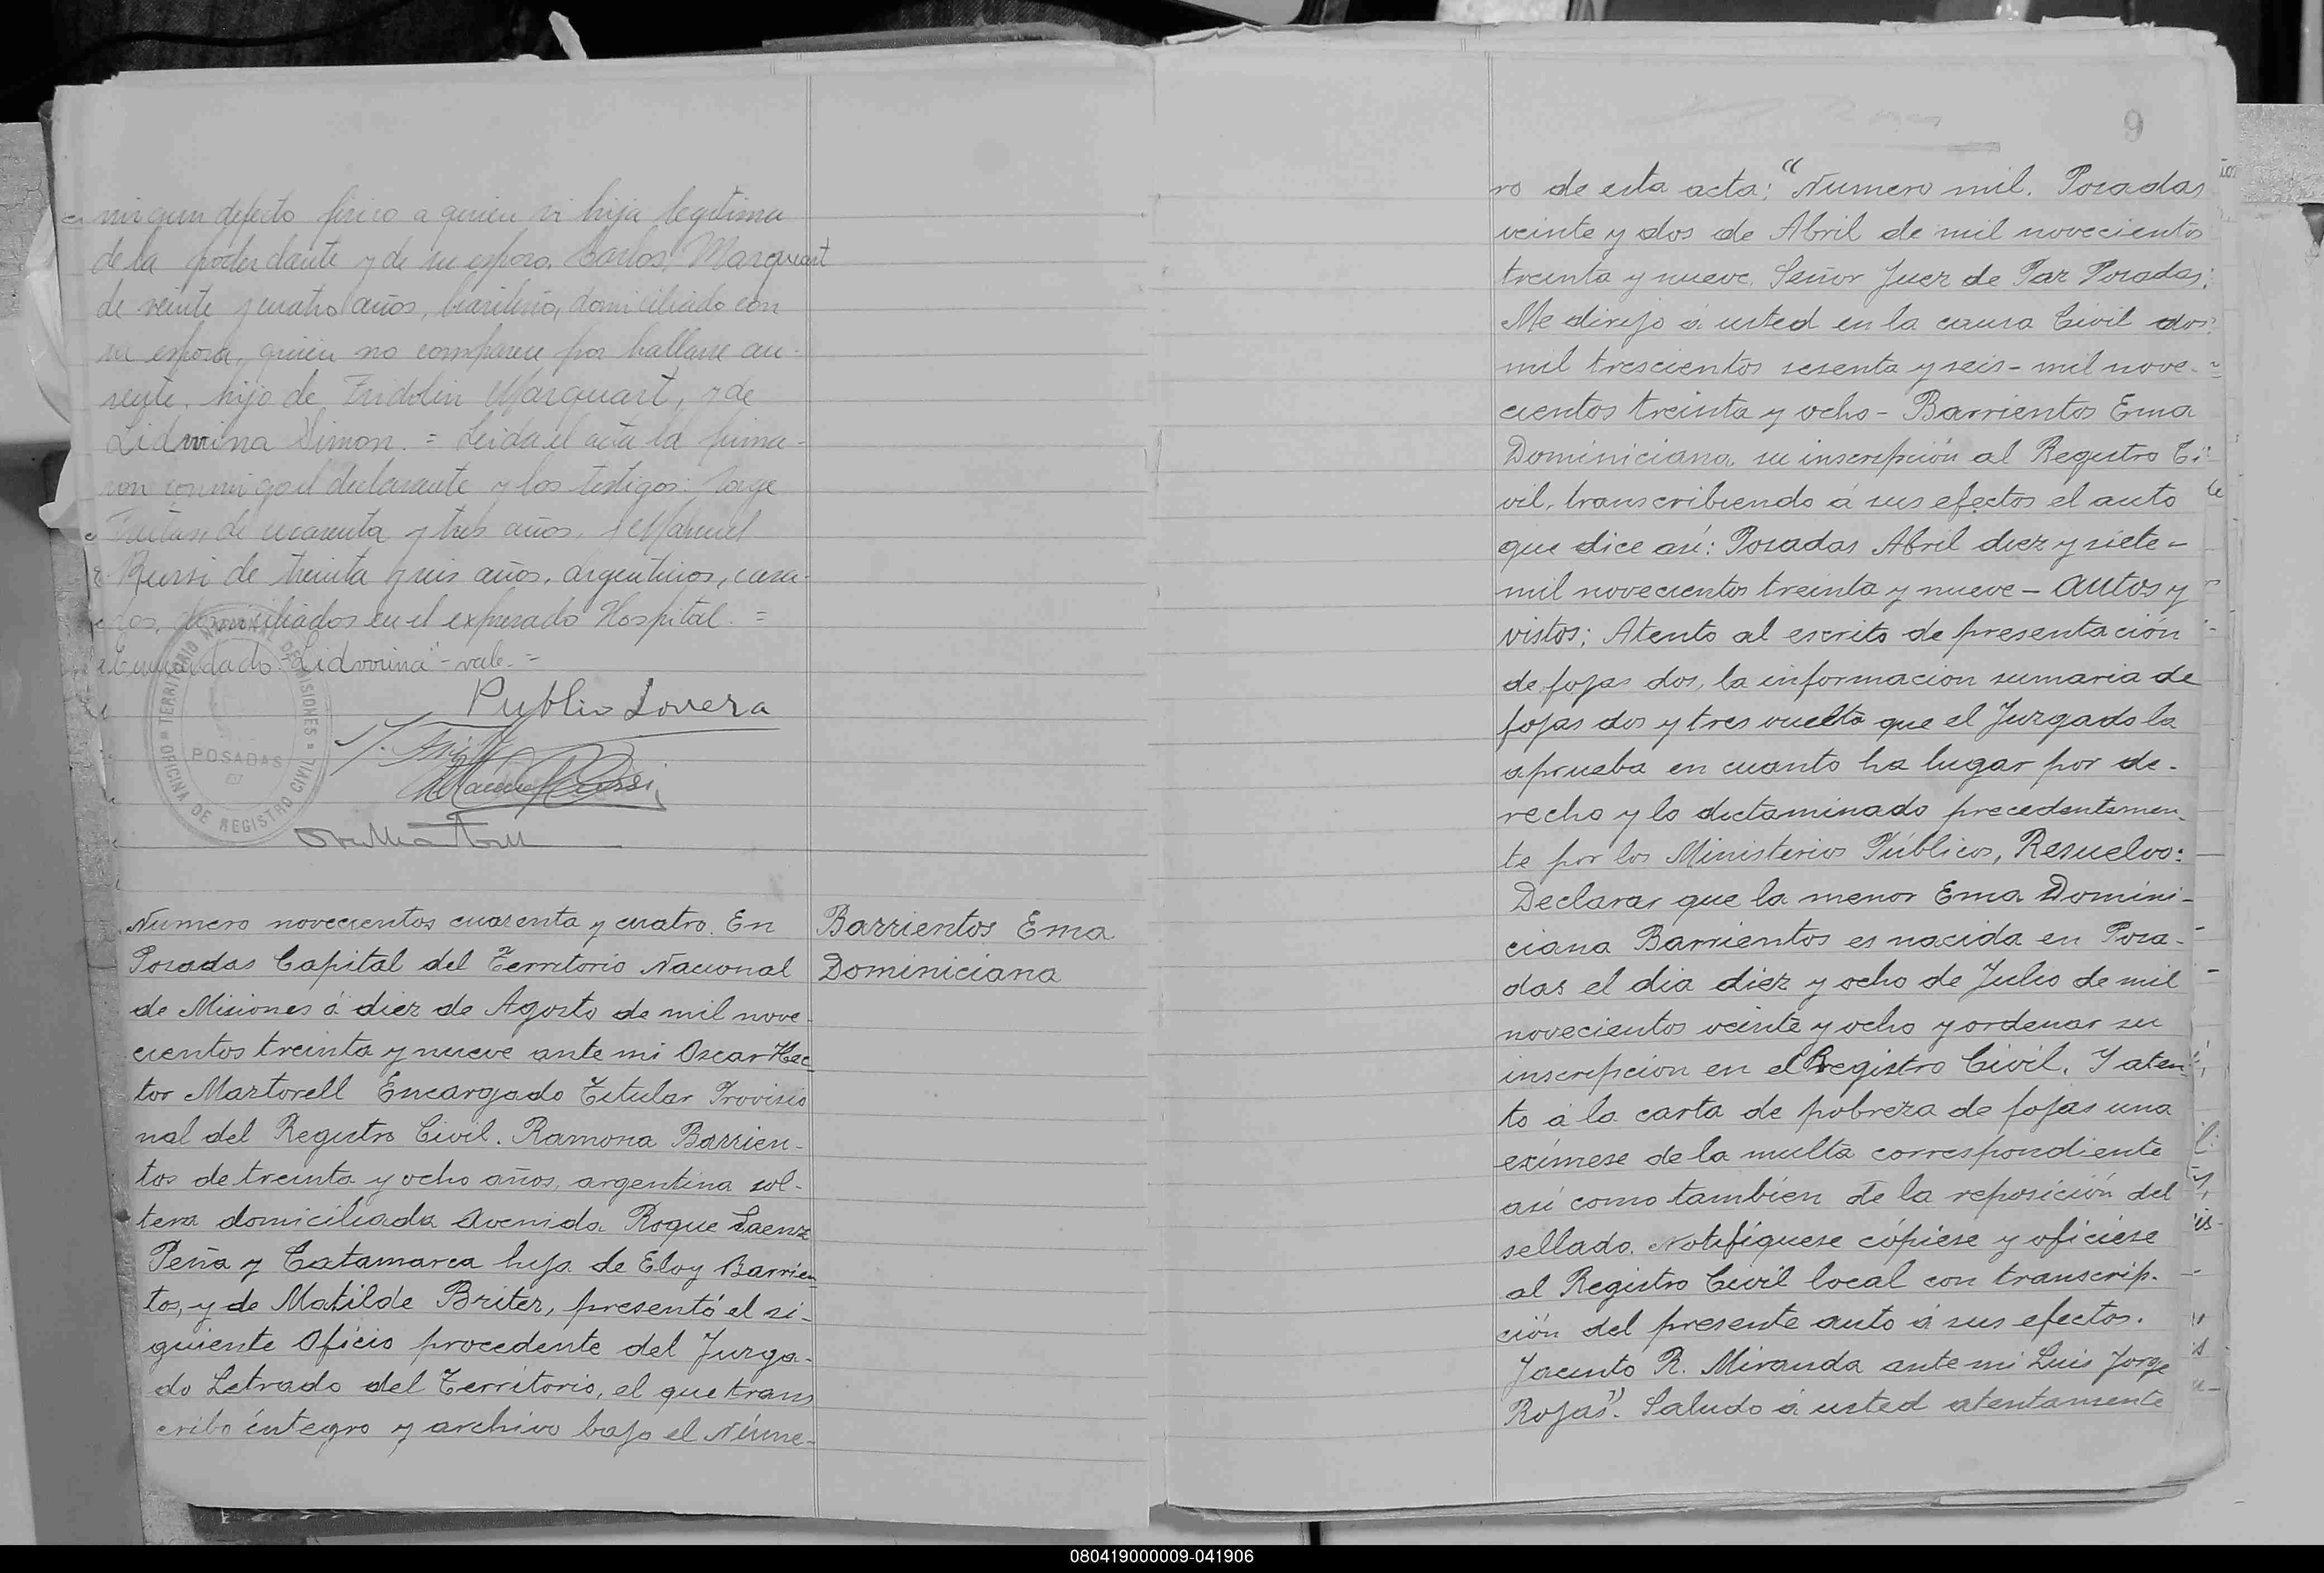 ningun defecto fisico a quien vi hija legitima
de la poderdante y de su esposo, Carlos Marquart
de veinte y cuatro años, brasileño, domiciliado con
su esposa, quien no comparece por hallarse au-
sente, hijo de Fridolin Marquart, y de
Lidwina Simon. = Leida el acta la firma-
ron conmigo el declarante y los testigos: Jorge
de cuarenta y tres años, y Manuel
Russi de treinta y seis años, argentinos, casa-
dos, domiciliados en el expresado Hospital. =
Enmendado "Lidwina" - vale. =
Publio Lovera
TERRITORIO NACIONAL DE MISIONES
POSADAS
OFICINA DE REGISTRO CIVIL
Numero novecientos cuarenta y cuatro. En
Posadas Capital del Territorio Nacional
de Misiones á diez de Agosto de mil nove-
cientos treinta y nueve ante mi Oscar Hec-
tor Martorell Encargado Titular Provisio
nal del Registro Civil. Ramona Barrien-
tos de treinta y ocho años, argentina sol-
tera domiciliada Avenida Roque Saenz
Peña y Catamarca hija de Eloy Barrien
tos, y de Matilde Briter, presentó el si-
guiente Oficio procedente del Juzga-
do Letrado del Territorio, el que trans
cribo íntegro y archivo bajo el Núme-
Barrientos Ema
Dominiciana
9
ro de esta acta: "Numero mil. Posadas
veinte y dos de Abril de mil novecientos
treinta y nueve. Señor Juez de Paz Posadas:
Me dirijo á usted en la causa Civil dos
mil trescientos sesenta y seis - mil nove-
cientos treinta y ocho - Barrientos Ema
Dominiciana su inscripción al Registro Ci-
vil, transcribiendo á sus efectos el auto
que dice así: Posadas Abril diez y siete -
mil novecientos treinta y nueve - Autos y
vistos; Atento al escrito de presentación
de fojas dos, la informacion sumaria de
fojas dos y tres vuelta que el Juzgado la
aprueba en cuanto ha lugar por de-
recho y lo dictaminado precedentemen-
te por los Ministerios Públicos, Resuelvo:
Declarar que la menor Ema Domini-
ciana Barrientos es nacida en Posa-
das el dia diez y ocho de Julio de mil
novecientos veinte y ocho y ordenar su
inscripcion en el Registro Civil. Y aten-
to á la carta de pobreza de fojas una
exímese de la multa correspondiente
así como tambien de la reposición del
sellado. Notifíquese cópiese y ofíciese
al Registro Civil local con transcrip-
ción del presente auto á sus efectos.
Jacinto R. Miranda ante mi Luis Jorge
Rojas". Saludo á usted atentamente
080419000009-041906